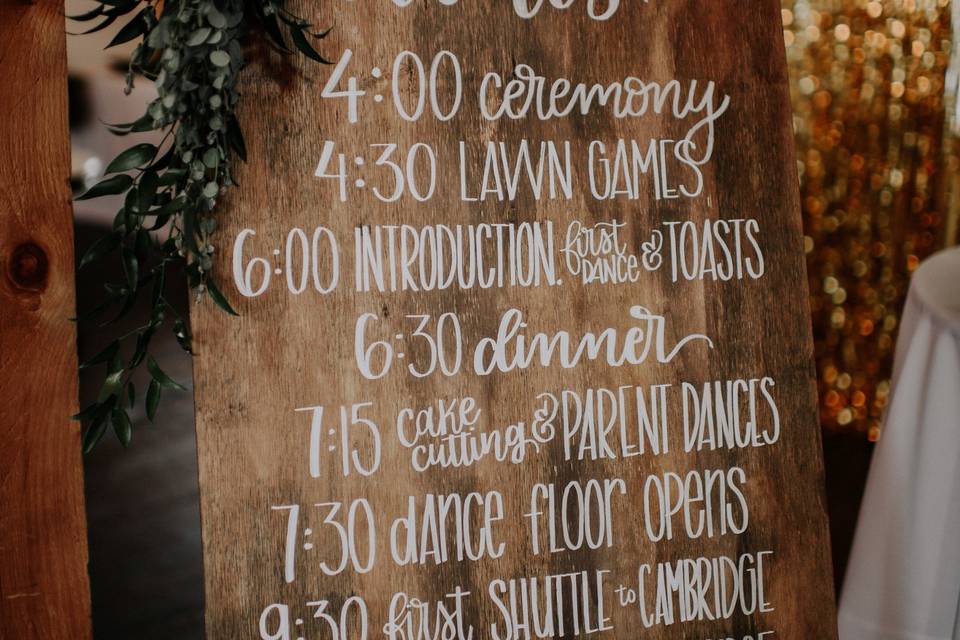 4:00 ceremony
4:30 LAWN GAMES
6:00 INTRODUCTION. first DANCE & TOASTS
6:30 dinner
7:15 cake cutting & PARENT DANCES
7:30 dance floor opens
9:30 first SHUTTLE to CAMBRIDGE